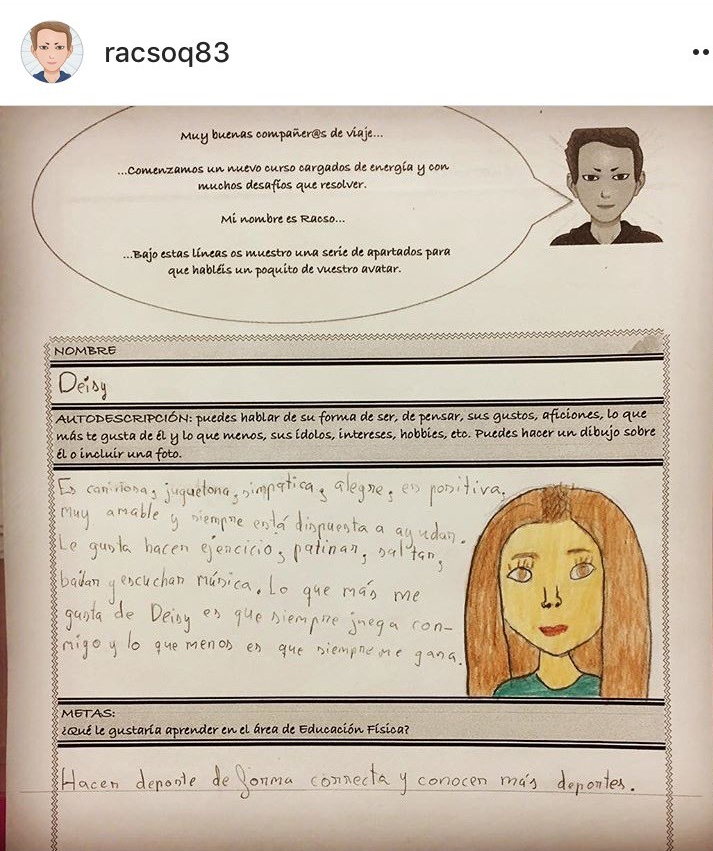 racsoq83
Muy buenas compañer@s de viaje...
...Comenzamos un nuevo curso cargados de energía y con
muchos desafíos que resolver.
Mi nombre es Racso...
...Bajo estas líneas os muestro una serie de apartados para
que habléis un poquito de vuestro avatar.
NOMBRE
Deisy
AUTODESCRIPCIÓN: puedes hablar de su forma de ser, de pensar, sus gustos, aficiones, lo que
más te gusta de él y lo que menos, sus ídolos, intereses, hobbies, etc. Puedes hacer un dibujo sobre
él o incluir una foto.
Es cariñosa, juguetona, simpática, alegre, es positiva,
muy amable y siempre está dispuesta a ayudar.
Le gusta hacer ejercicio, patinar, saltar,
bailar y escuchar música. Lo que más me
gusta de Deisy es que siempre juega con-
migo y lo que menos es que siempre me gana.
METAS:
¿Qué le gustaría aprender en el área de Educación Física?
Hacer deporte de forma correcta y conocer más deportes.